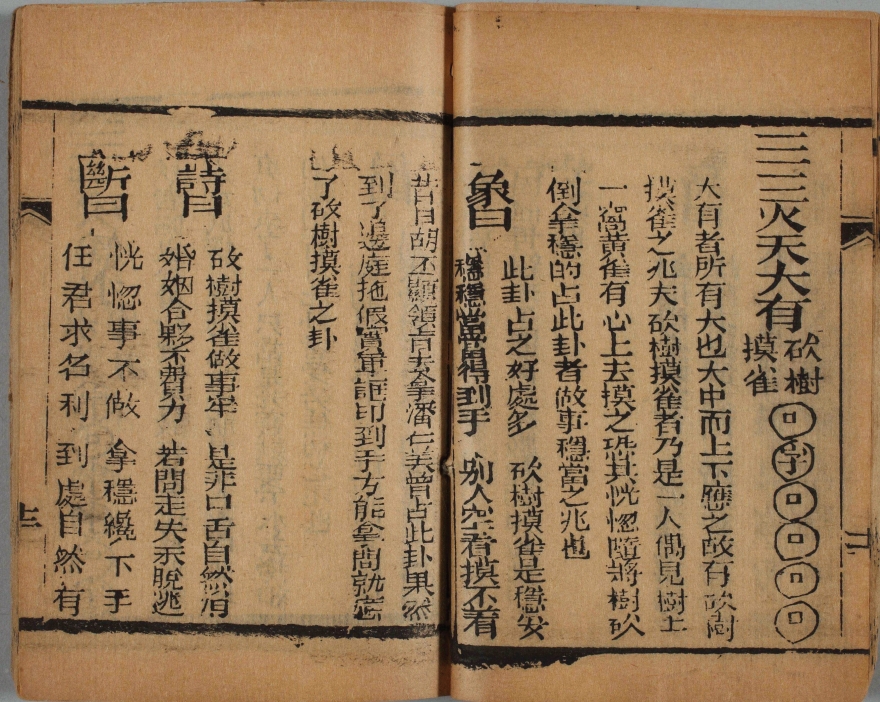 火天大有
砍樹
摸雀
大有者所有大也大中而上下應之故有砍樹
摸雀之兆夫砍樹摸雀者乃是一人偶見樹上
一窩黃雀有心上去摸之恐其恍惚隨將樹砍
倒拿穩的占此卦者做事穩當之兆也
象曰
此卦占之好處多 砍樹摸雀是穩安
穩穩當當得到手 別人空着摸不着
昔日胡丕顯領旨去拿潘仁美曾占此卦果然
到了邊庭拖假賣軍誆印到手方能拿問就應
了砍樹摸雀之卦
詩曰
砍樹摸雀做事牢 是非口舌自然消
婚姻合夥不費力 若問走失未脫逃
斷曰
恍惚事不做 拿穩纔下手
任君求名利 到處自然有